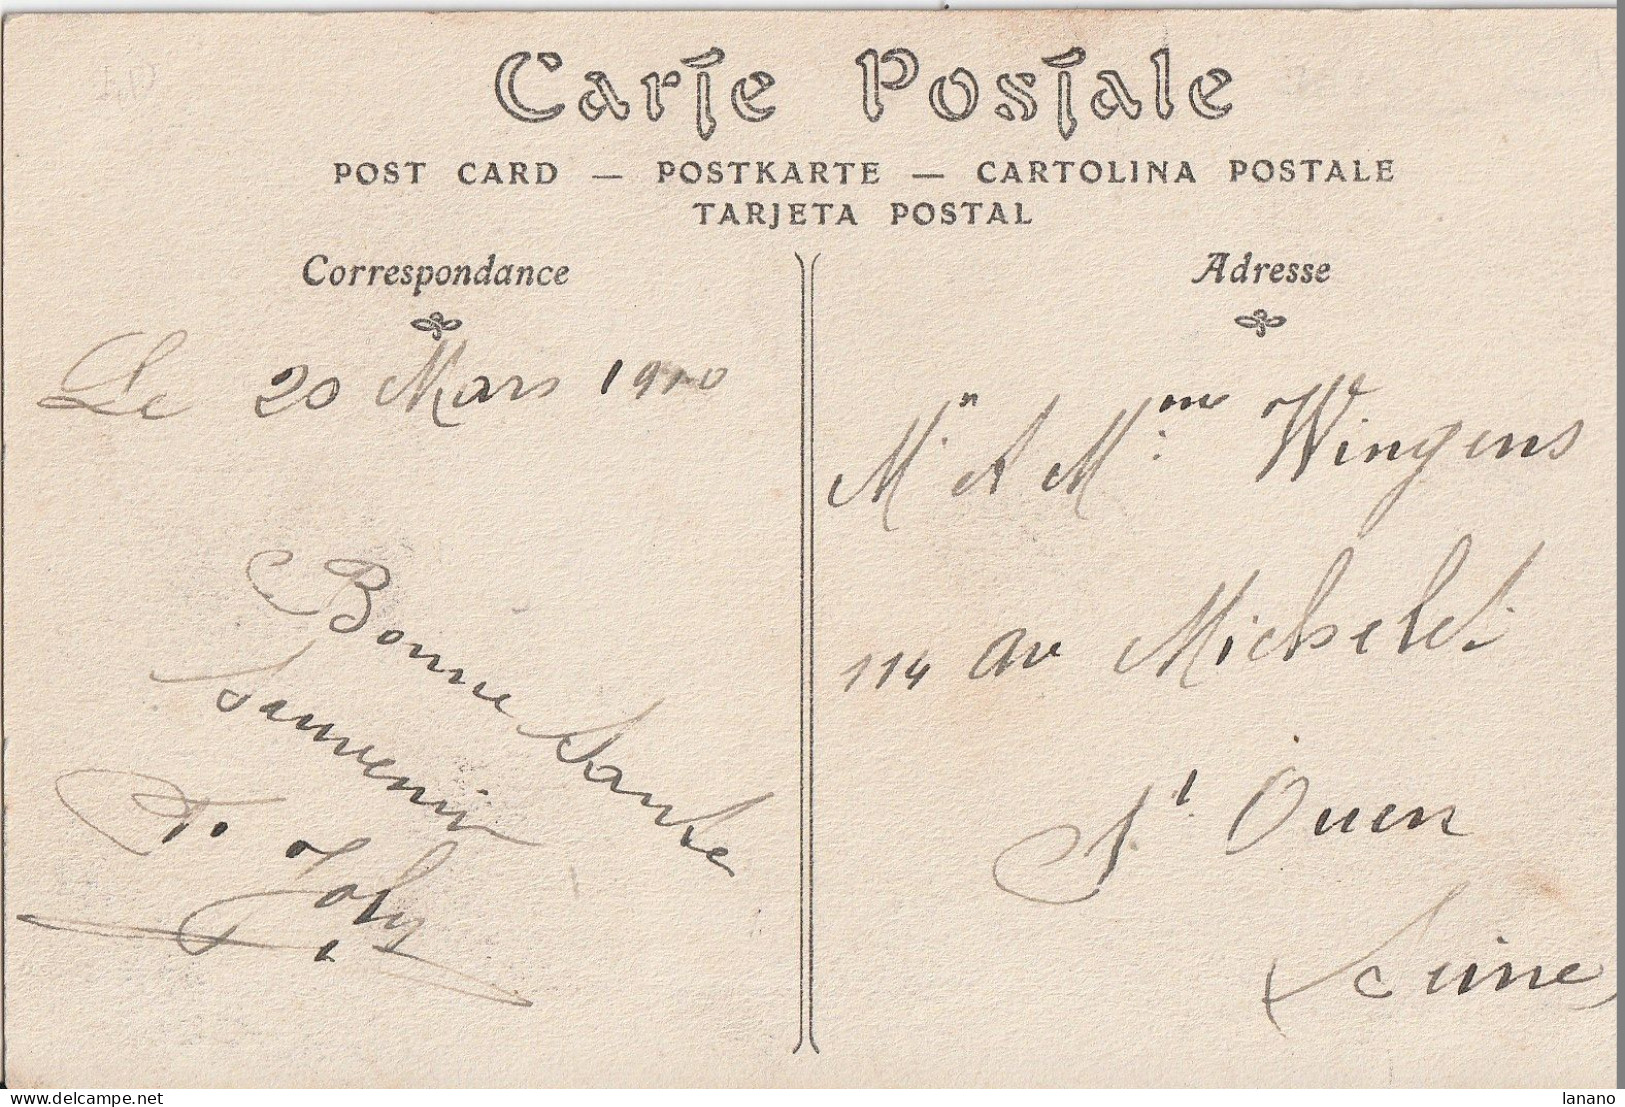 Carte Postale
POST CARD — POSTKARTE — CARTOLINA POSTALE
TARJETA POSTAL
Correspondance
Le 20 Mars 1910
Bonne Sante
Souvenir
F. Joly
Adresse
Mr & Mme Wingens
114 av Michelet
St Ouen
Seine
www.delcampe.net
lanano